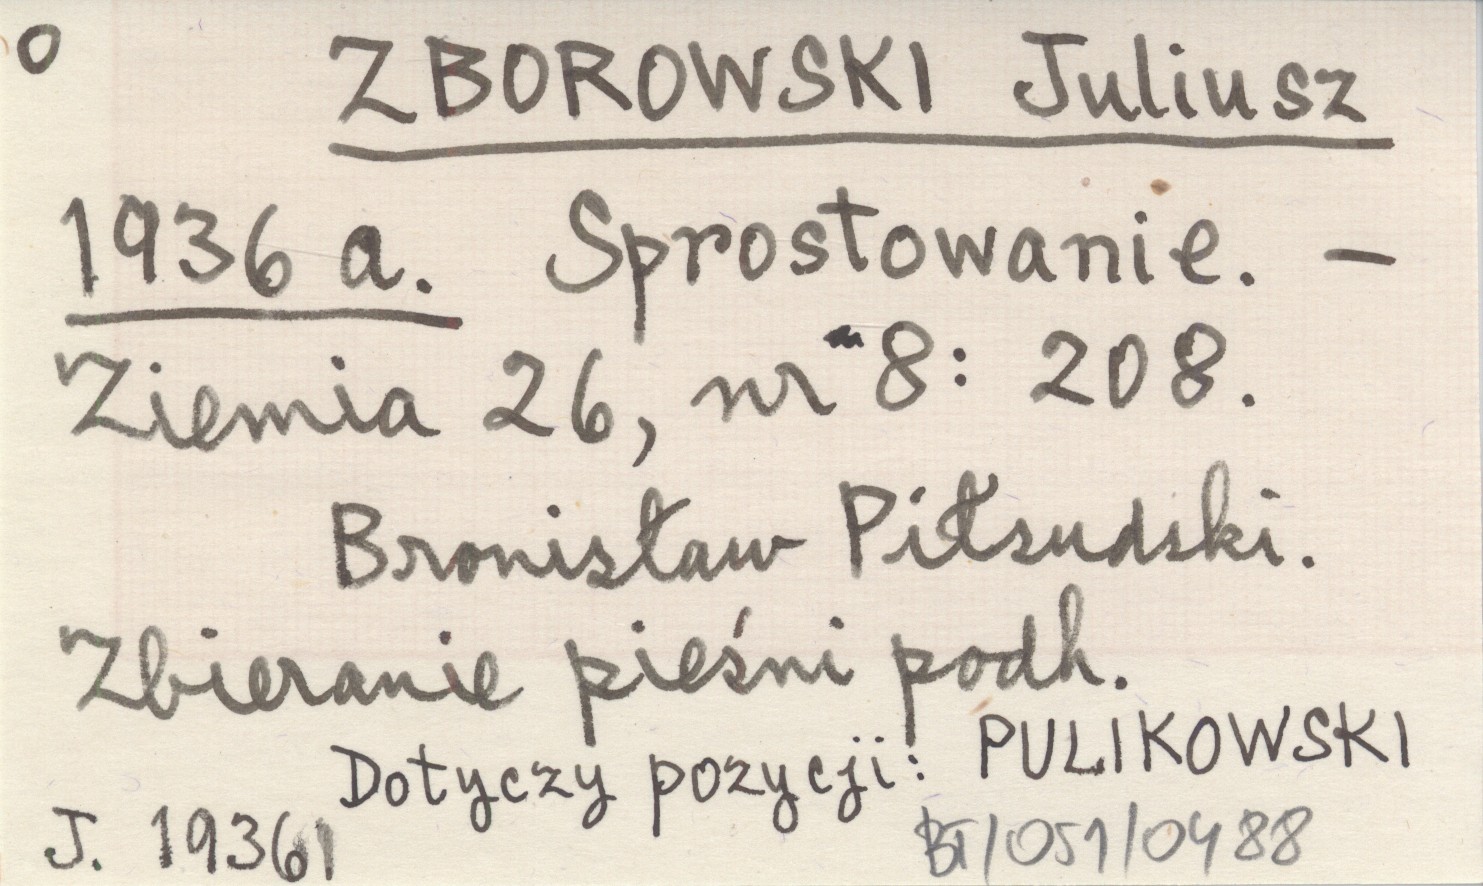 O ZBOROWSKI Juliusz
1936 a. Sprostowanie. -
Ziemia 26, nr 8: 208.
Bronisław Piłsudski.
Zbieranie pieśni podh.
Dotyczy pozycji: PULIKOWSKI
J. 1936 BT/051/0488